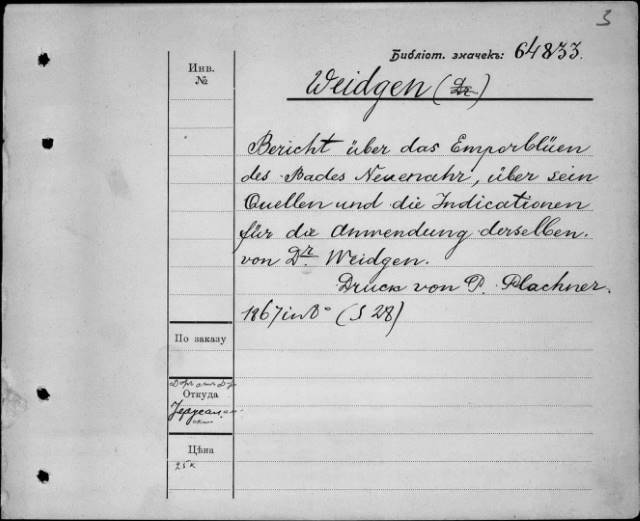 3
Библіот. значекъ: 64833.
Инв.
№
Weidgen (Dr)
Bericht über das Emporblüen
des Bades Neuenahr, über sein
Quellen und die Indicationen
für die Anwendung derselben.
von Dr Weidgen.
Druck von P. Plachner.
1867 in 8° (S 28)
По заказу
Откуда
Цѣна
25к